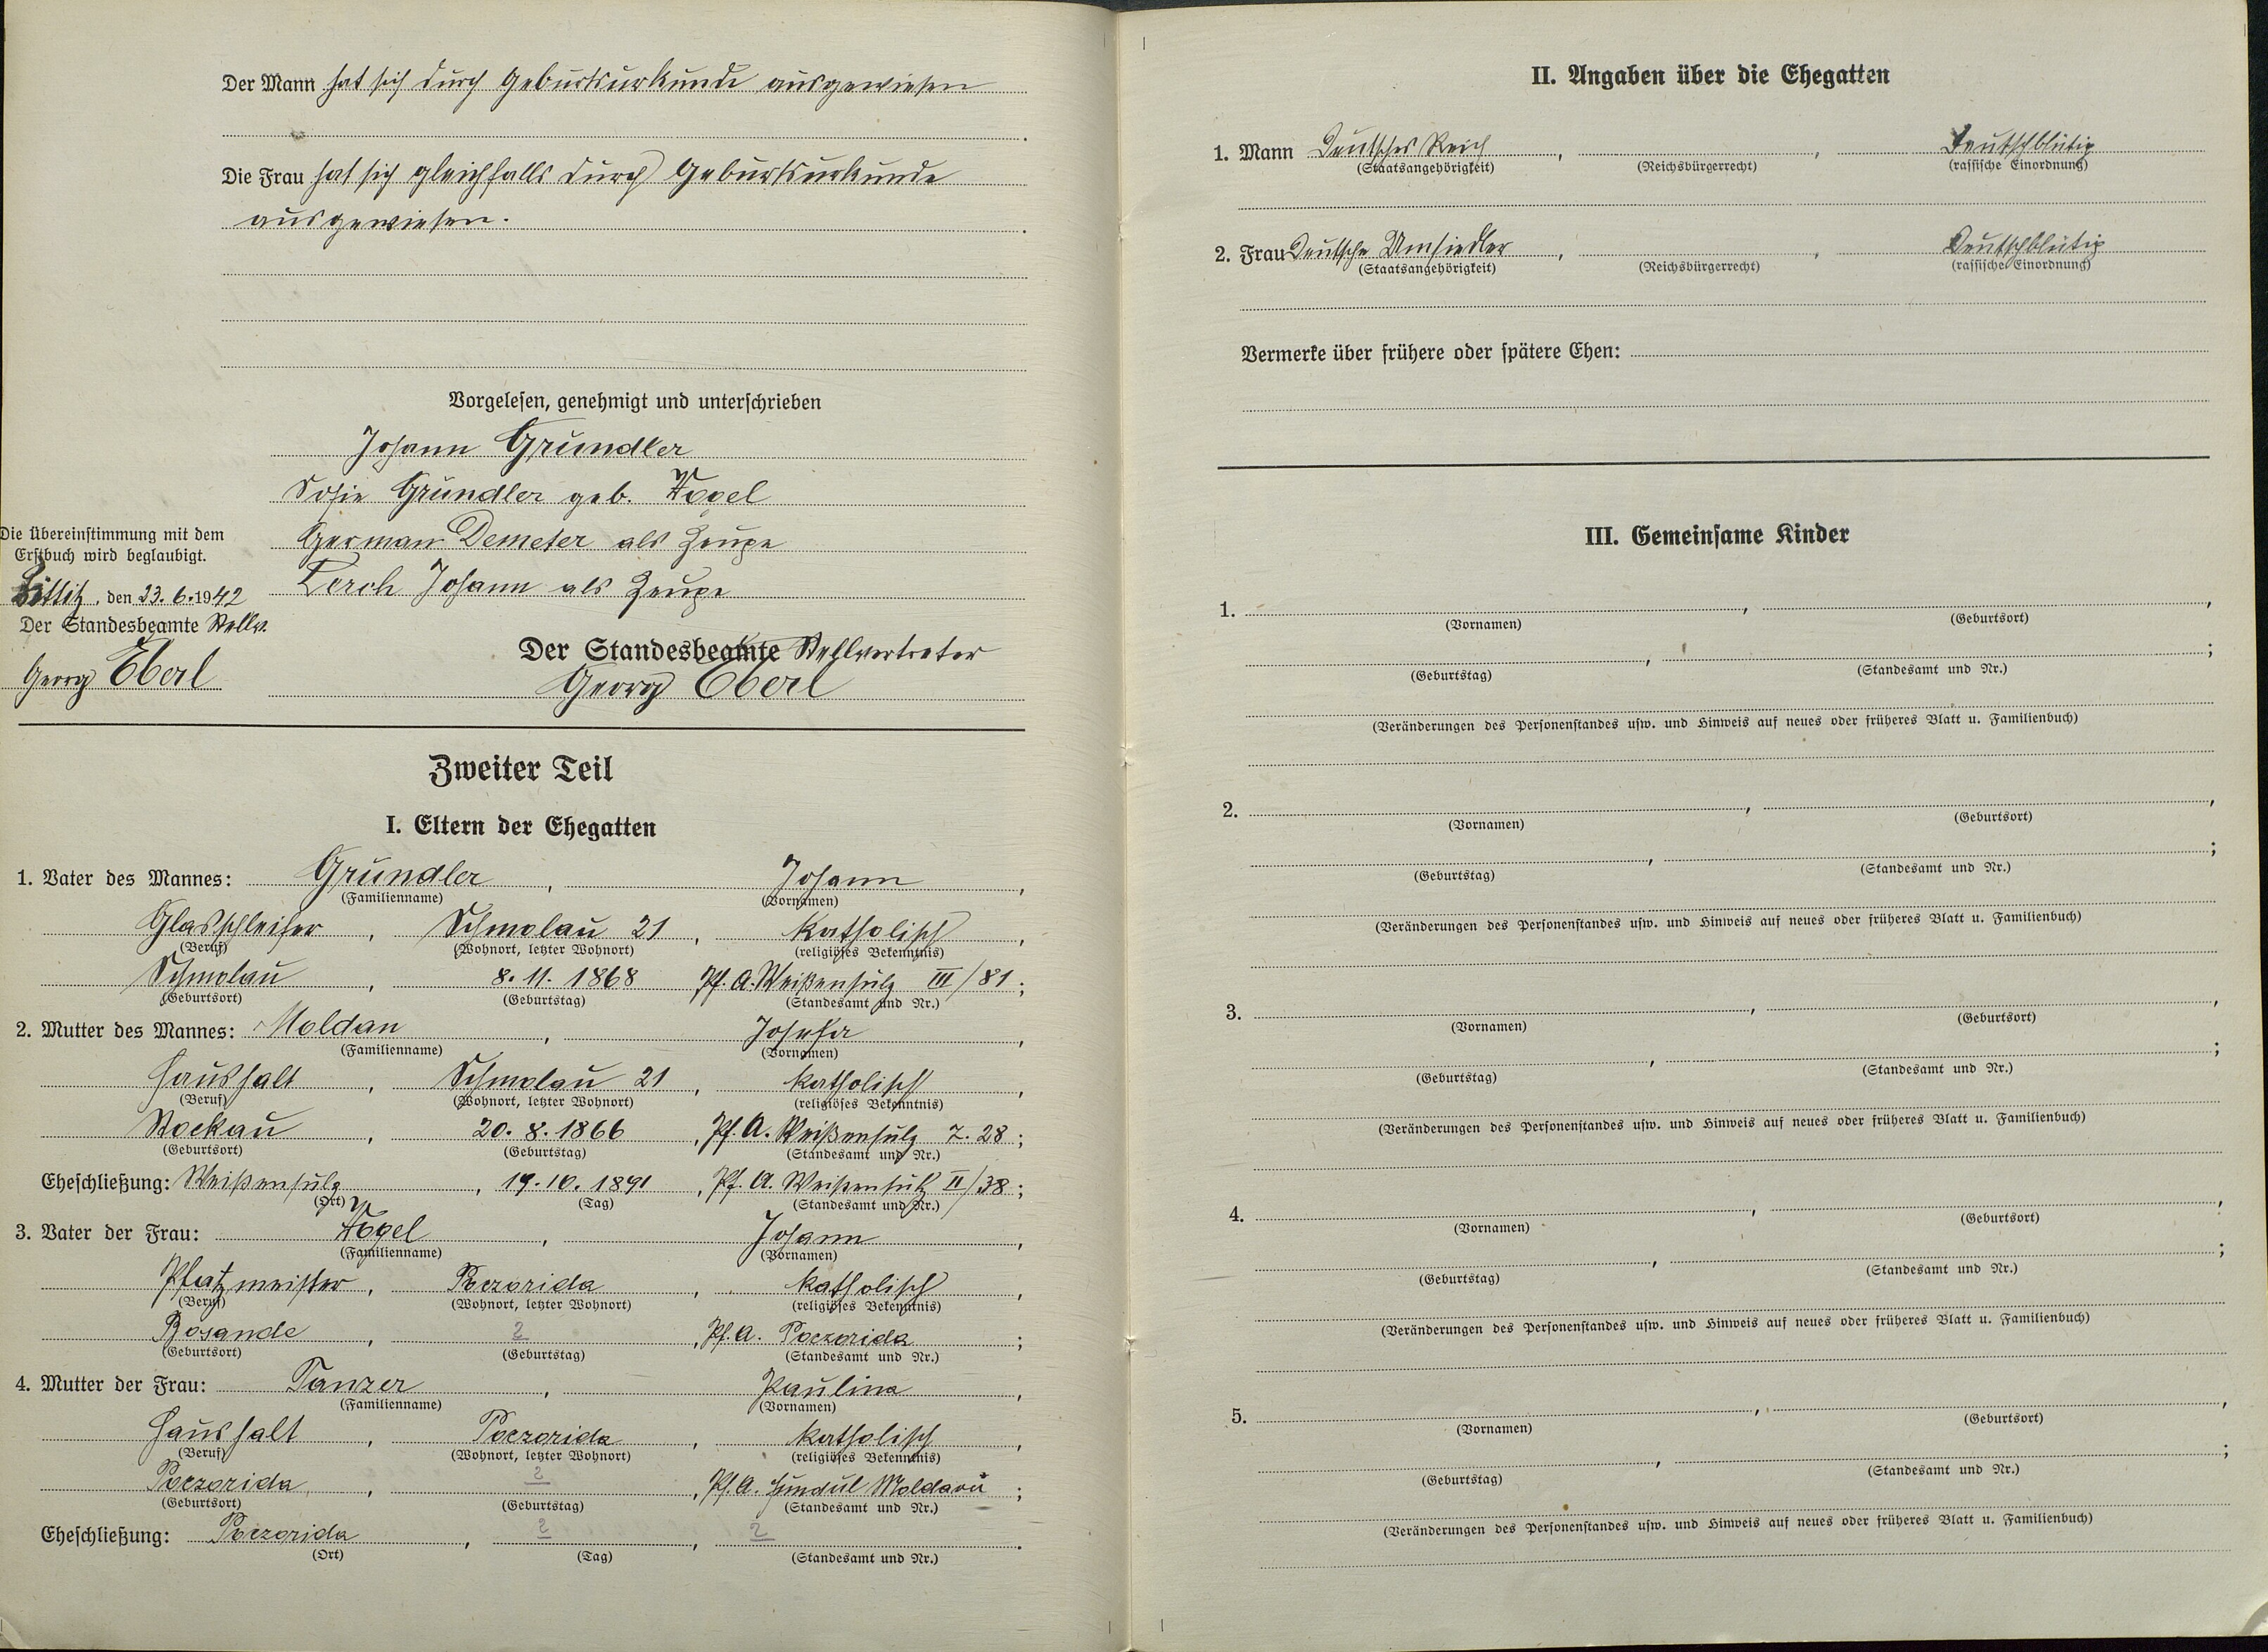 Der Mann hat sich durch Geburtsurkunde ausgewiesen
Die Frau hat sich gleichfalls durch Geburtsurkunde
ausgewiesen.
Vorgelesen, genehmigt und unterschrieben
Johann Gründler
Sofie Gründler geb. Vogel
German Demeter als Zeuge
Lerch Johann als Zeuge
Die Übereinstimmung mit dem
Erstbuch wird beglaubigt.
, den 23. 6. 1942
Der Standesbeamte Stellv.
Georg Eberl
Der Standesbeamte Stellvertreter
Georg Eberl
Zweiter Teil
I. Eltern der Ehegatten
1. Vater des Mannes: Gründler, Johann,
(Familienname) (Vornamen)
Glasschleifer, Schmolau 21, katholisch,
(Beruf) (Wohnort, letzter Wohnort) (religiöses Bekenntnis)
Schmolau, 8. 11. 1868 Pf. A. Weißensulz III/81;
(Geburtsort) (Geburtstag) (Standesamt und Nr.)
2. Mutter des Mannes: Moldan, Josefa,
(Familienname) (Vornamen)
Haushalt, Schmolau 21, katholisch,
(Beruf) (Wohnort, letzter Wohnort) (religiöses Bekenntnis)
Stockau, 20. 8. 1866, Pf. A. Weißensulz 7. 28;
(Geburtsort) (Geburtstag) (Standesamt und Nr.)
Eheschließung: Weißensulz, 19. 10. 1891, Pf. A. Weißensulz II/38;
(Ort) (Tag) (Standesamt und Nr.)
3. Vater der Frau: Vogel, Johann,
(Familienname) (Vornamen)
Platzmeister, Poczorida, katholisch,
(Beruf) (Wohnort, letzter Wohnort) (religiöses Bekenntnis)
Rosande, ?, Pf. A. Poczorida;
(Geburtsort) (Geburtstag) (Standesamt und Nr.)
4. Mutter der Frau: Tanzer, Paulina,
(Familienname) (Vornamen)
Haushalt, Poczorida, katholisch,
(Beruf) (Wohnort, letzter Wohnort) (religiöses Bekenntnis)
Poczorida, ?, Pf. A. Moldavi;
(Geburtsort) (Geburtstag) (Standesamt und Nr.)
Eheschließung: Poczorida, ?, ?.
(Ort) (Tag) (Standesamt und Nr.)
II. Angaben über die Ehegatten
1. Mann Deutsches Reich, , Deutschblütig
(Staatsangehörigkeit) (Reichsbürgerrecht) (rassische Einordnung)
2. Frau Deutsche Umsiedler, , Deutschblütig
(Staatsangehörigkeit) (Reichsbürgerrecht) (rassische Einordnung)
Vermerke über frühere oder spätere Ehen:
III. Gemeinsame Kinder
1. , ,
(Vornamen) (Geburtsort)
, ;
(Geburtstag) (Standesamt und Nr.)
(Veränderungen des Personenstandes usw. und Hinweis auf neues oder früheres Blatt u. Familienbuch)
2. , ,
(Vornamen) (Geburtsort)
, ;
(Geburtstag) (Standesamt und Nr.)
(Veränderungen des Personenstandes usw. und Hinweis auf neues oder früheres Blatt u. Familienbuch)
3. , ,
(Vornamen) (Geburtsort)
, ;
(Geburtstag) (Standesamt und Nr.)
(Veränderungen des Personenstandes usw. und Hinweis auf neues oder früheres Blatt u. Familienbuch)
4. , ,
(Vornamen) (Geburtsort)
, ;
(Geburtstag) (Standesamt und Nr.)
(Veränderungen des Personenstandes usw. und Hinweis auf neues oder früheres Blatt u. Familienbuch)
5. , ,
(Vornamen) (Geburtsort)
, ;
(Geburtstag) (Standesamt und Nr.)
(Veränderungen des Personenstandes usw. und Hinweis auf neues oder früheres Blatt u. Familienbuch)